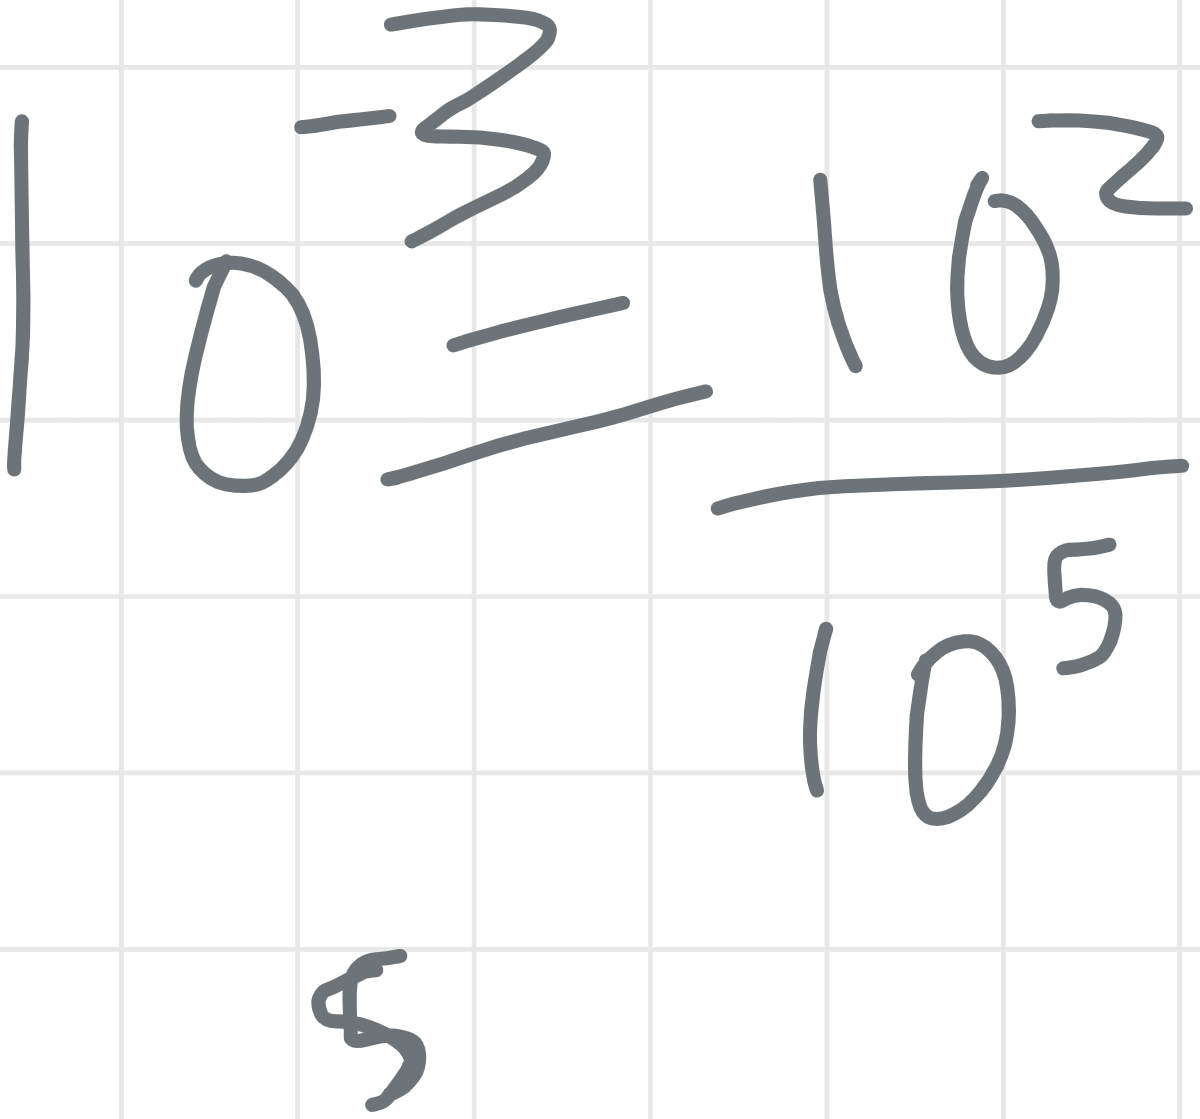 10⁻³ = 10² / 10⁵
5